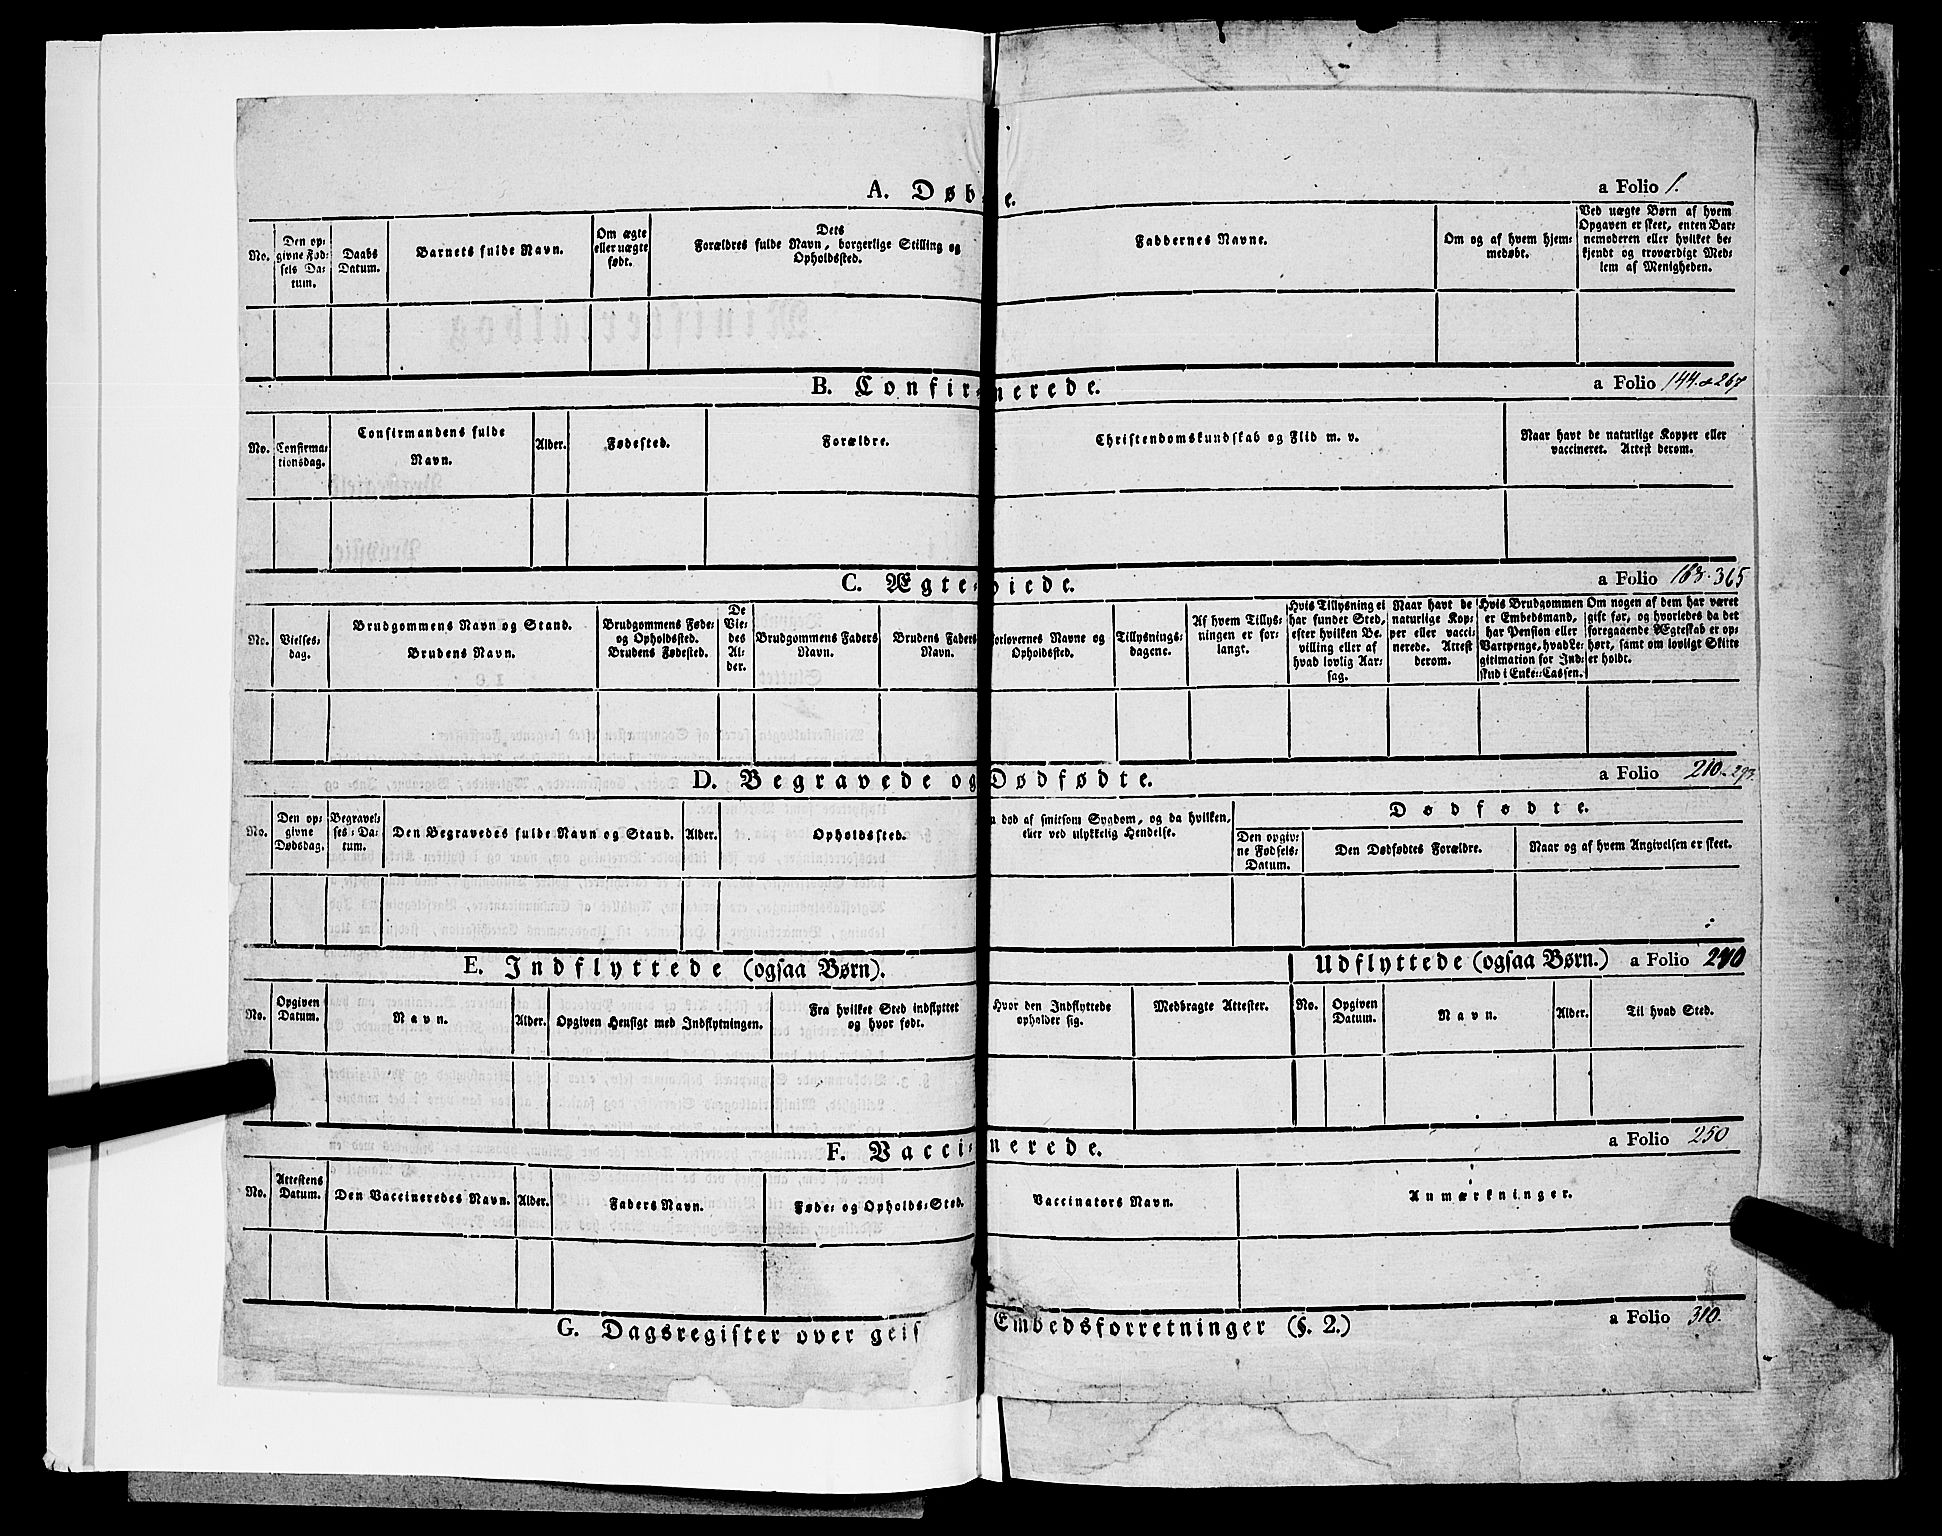 A. Døb e. a Folio 1.
No. Den op-
givne Fød-
sels Da-
tum. Daabs
Datum. Barnets fulde Navn. Om ægte
eller uægte
født. Dets
Forældres fulde Navn, borgerlige Stilling og
Opholdssted. Faddernes Navne. Om og af hvem hjem-
medøbt. Ved uægte Børn af hvem
Opgaven er skeet, enten Bar-
nemoderen eller hvilket be-
kjendt og troværdigt Med-
lem af Menigheden.
B. Confir nerede. a Folio 144 & 267
No. Confirma-
tionsdag. Confirmandens fulde
Navn. Alder. Fødested. Forældre. Christendomskundskab og Flid m. v. Naar havt de naturlige Kopper eller
vaccineret. Attest derom.
C. Ægte viede. a Folio 163. 365
No. Vielses-
dag. Brudgommens Navn og Stand.
Brudens Navn. Brudgommens Føde-
og Opholdssted.
Brudens Fødested. De
Vie-
des
Al-
der. Brudgommens Faders
Navn. Brudens Faders
Navn. Forlovernes Navne og
Opholdssted. Tillysnings-
dagene. Af hvem Tillys-
ningen er for-
langt. Hvis Tillysning ei
har fundet Sted,
efter hvilken Be-
villing eller af
hvad lovlig Aar-
sag. Naar havt de
naturlige Kop-
per eller vacci-
nerede. Attest
derom. Hvis Brudgommen
er Embedsmand,
har Pension eller
Vartpenge, hvad Le-
gitimation for Ind-
skud i Enke-Cassen. Om nogen af dem har været
gift før, og hvorledes da det
foregaaende Ægteskab er op-
hørt, samt om lovligt Skifte
er holdt.
D. Begravede og Dødfødte. a Folio 210 293.
No. Den op-
givne
Dødsdag. Begravel-
ses-Da-
tum. Den Begravedes fulde Navn og Stand. Alder. Opholdssted. død af smitsom Sygdom, og da hvilken,
eller ved ulykkelig Hendelse. Dødfødte.
Den opgiv-
ne Fødsels-
Datum. Den Dødfødtes Forældre. Naar og af hvem Angivelsen er skeet.
E. Indflyttede (ogsaa Børn). Udflyttede (ogsaa Børn.) a Folio 240
No. Opgiven
Datum. Navn. Alder. Opgiven Hensigt med Indflytningen. Fra hvilket Sted indflyttet
og hvor født. Hvor den Indflyttede
opholder sig. Medbragte Attester. No. Opgiven
Datum. Navn. Alder. Til hvad Sted.
F. Vacci nerede. a Folio 250
No. Attestens
Datum. Den Vaccineredes Navn. Alder. Faders Navn. Føde- og Opholds-Sted. Vaccinators Navn. Anmærkninger.
G. Dagsregister over geis Embedsforretninger (§. 2.) a Folio 310.